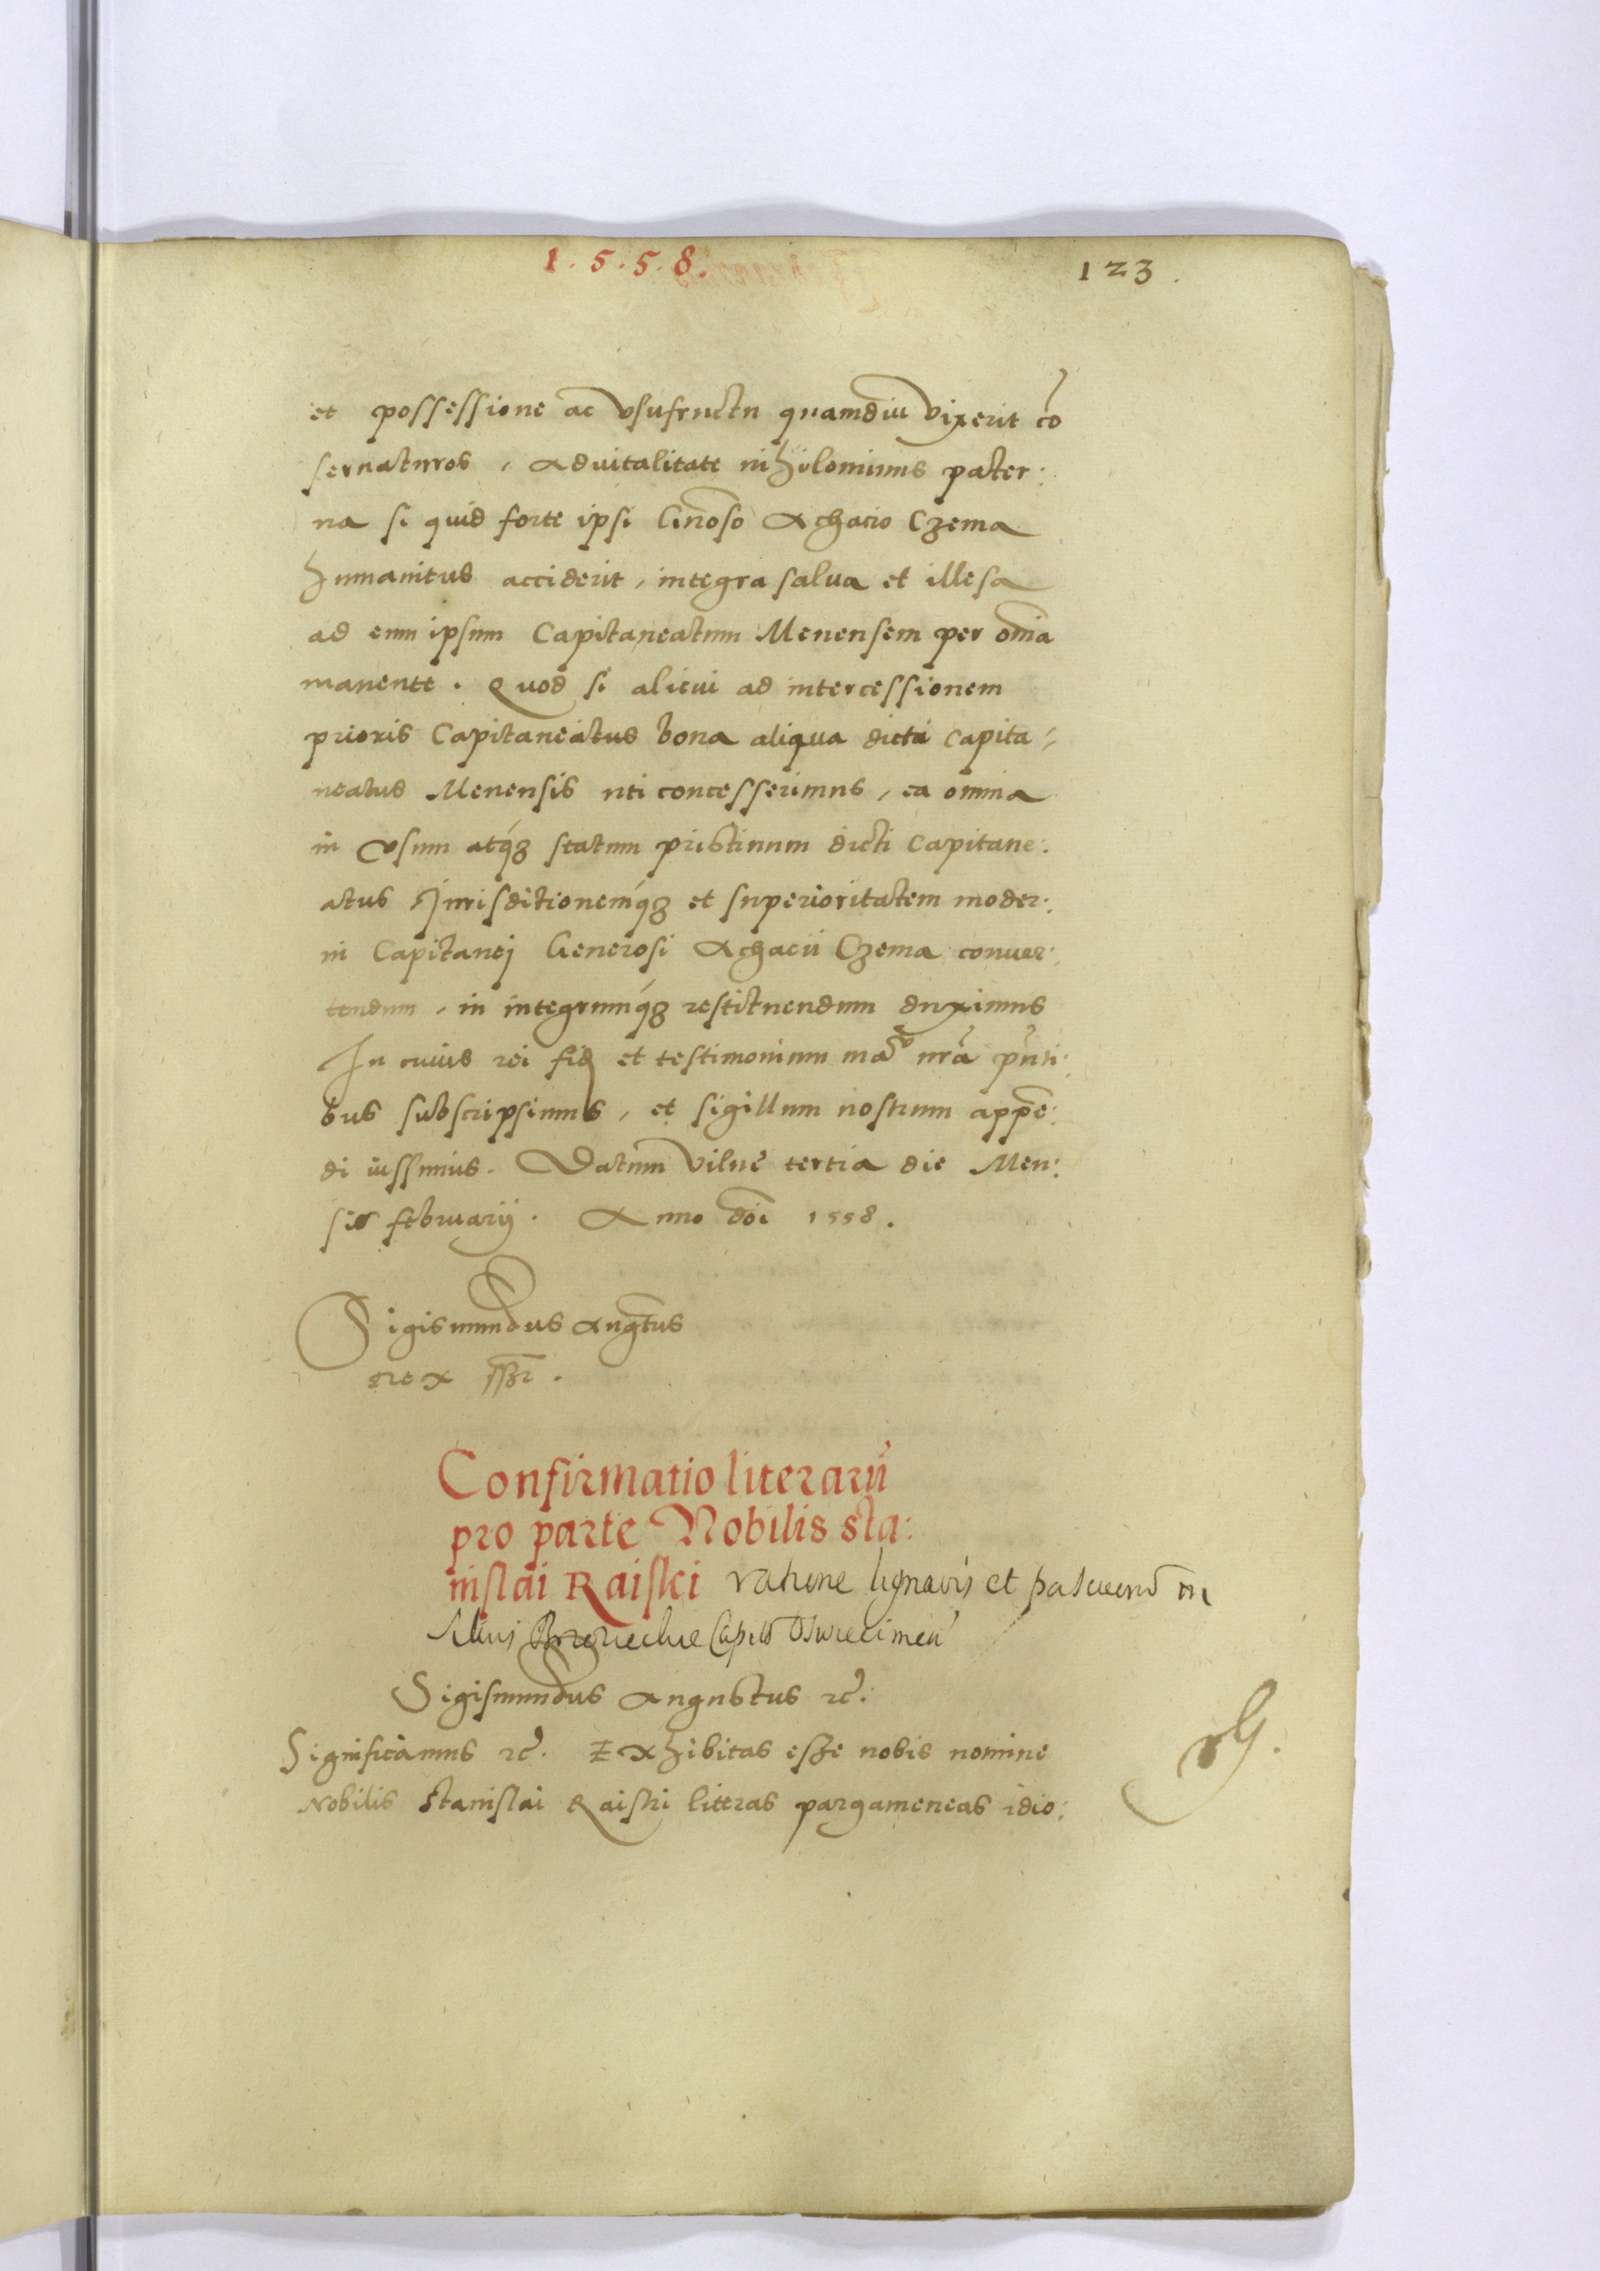 1.5.5.8.
123.
et possessione ac vsufructu quamdiu vixerit cō
seruaturos, aduitalitate nihilominus pater:
na si quid forte ipsi Gnōso Achacio Czema
humanitus acciderit, integra salua et illesa
ad eum ipsum Capitaneatum Menensem per om̄ia
manente. Quod si alicui ad intercessionem
prioris Capitaneatus bona aliqua dicti Capita:
neatus Menensis uti concesserimus, ea omnia
in vsum atq́ꝫ statum pristinum dicti Capitane:
atus Jurisditionemq́ꝫ et superioritatem moder:
ni Capitanej Generosi Achacii Czema conuer:
tendum, in integrumq́ꝫ restituendum duximus
In cuius rei fid et testimonium ma nrã pn̄ti:
bus subscripsimus, et sigillum nostrum appē:
di iussimus. Datum Vilnę tertia die Men:
sis februarij. Anno dōi 1558.
Sigismundus Augt̄us
rex ssz̄r.
Confirmatio literarū
pro parte Nobilis Sta:
nislai Raiski ratione lignaris et pascuend in
siluis Capit Oswiecimen
Sigismundus Augustus ꝛc̄.
Significamus ꝛc̄. Exhibitas esse nobis nomine
Nobilis Stanislai Raiski literas pargameneas idio: